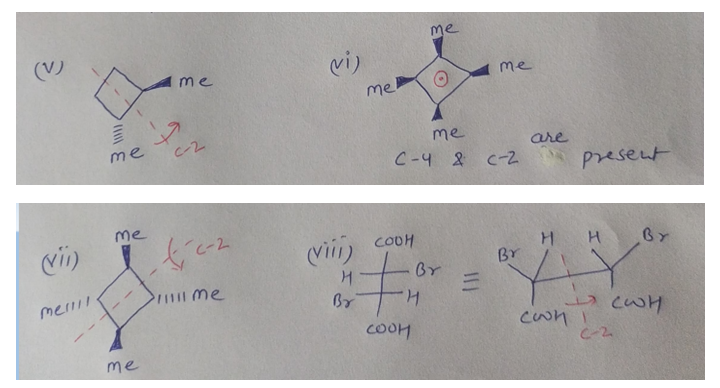 (v)
me
me
c-2
(vi)
me
me
me
me
C-4 & C-2 are present
(vii)
me
c-2
me
me
me
(viii)
COOH
H
Br
Br
H
COOH
≡
Br
H
H
Br
COOH
COOH
C-2